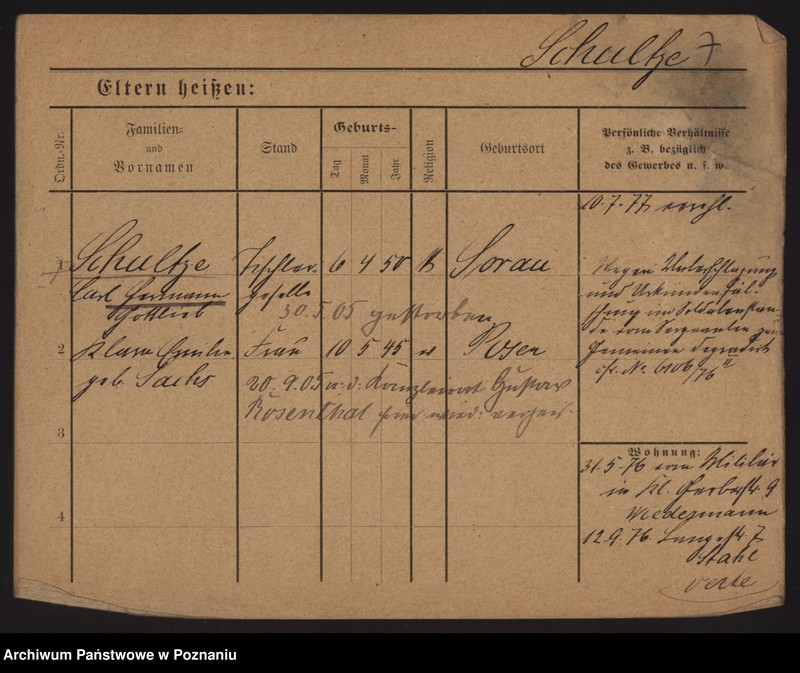 Schultze
Eltern heißen:
Ordn.-Nr.
Familien-
und
Vornamen
Stand
Geburts-
Tag
Monat
Jahr
Religion
Geburtsort
Persönliche Verhältnisse
z. B. bezüglich
des Gewerbes u. s. w.
10.7.77 verehl.
1 Schultze Tischler- 6 4 50 Sorau
Carl Hermann geselle
Gottlieb
30.5.05 gestorben
Wegen Unterschlagung
und Urkundenfäl-
schung im Soldatenstan-
de vom Sergeanten zum
Gemeinen degradirt
cfr. No 6106/76
2 Klara Emilie Frau 10 5 45 Posen
geb. Sachs
20.9.05 a. d. Kanzleirat Gustav
Rosenthal wied.
3
Wohnung:
31.5.76 vom Militär
in Kl. Gerberstr. 9
Wiedermann
4
12.9.76. Langestr. 7
Stahl
verte
Archiwum Państwowe w Poznaniu